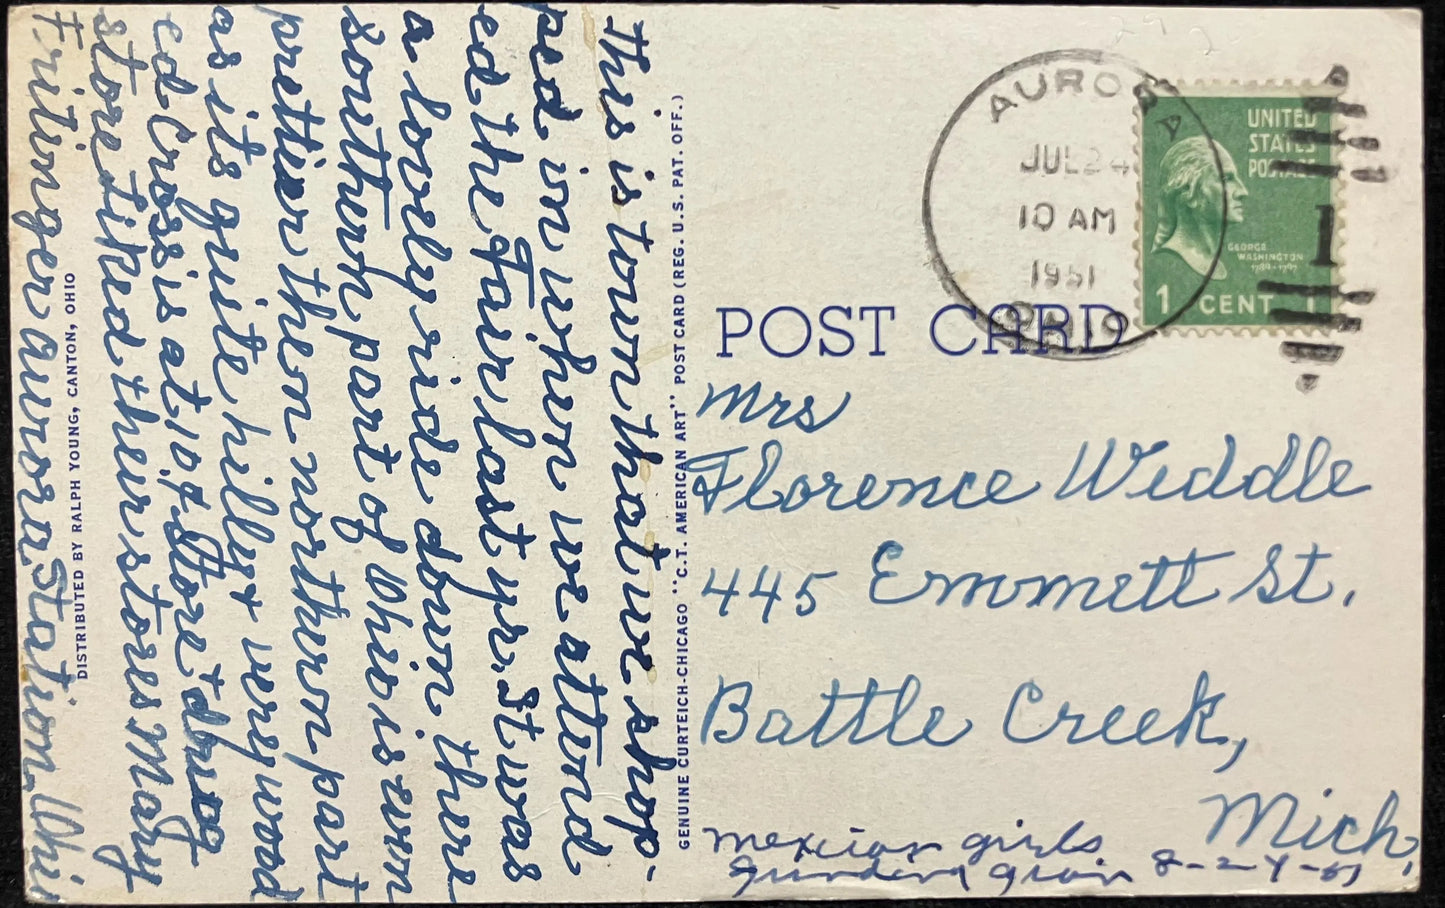 This is town that we shop-
ped in when we attend
ed the Fair last yr. It was
a lovely ride down there
southern part of Ohio is even
prettier then northern part
as its quite hilly & very wood
ed Cross is at 10¢ Store & drug
store Liked their stores Mary
Fritinger Aurora Station, Ohi
DISTRIBUTED BY RALPH YOUNG, CANTON, OHIO
GENUINE CURTEICH-CHICAGO "C.T. AMERICAN ART" POST CARD (REG. U.S. PAT. OFF.)
AURORA
JUL 24
10 AM
1951
OHIO
UNITED
STATES
POSTAGE
GEORGE
WASHINGTON
1789-1797
1 CENT 1
POST CARD
Mrs
Florence Weddle
445 Emmett St.
Battle Creek,
Mich,
Mexican girls
grinding grain 8-24-51